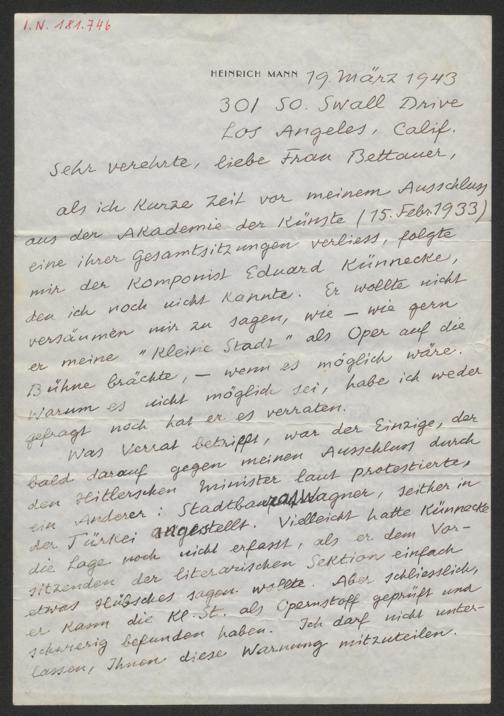 I.N. 181.746
HEINRICH MANN 19. März 1943
301 So. Swall Drive
Los Angeles, Calif.
Sehr verehrte, liebe Frau Bettauer,
als ich kurze Zeit vor meinem Ausschluss
aus der Akademie der Künste (15. Febr. 1933)
eine ihrer Gesamtsitzungen verliess, folgte
mir der Komponist Eduard Künnecke,
den ich noch nicht kannte. Er wollte nicht
versäumen mir zu sagen, wie — wie gern
er meine "Kleine Stadt" als Oper auf die
Bühne brächte, — wenn es möglich wäre.
Warum es nicht möglich sei, habe ich weder
gefragt noch hat er es verraten.
Was Verrat betrifft, war der Einzige, der
bald darauf gegen meinen Ausschluss durch
den Hitlerschen Minister laut protestierte,
ein Anderer: Stadtbaurat Wagner, seither in
der Türkei angestellt. Vielleicht hatte Künnecke
die Lage noch nicht erfasst, als er dem Vor-
sitzenden der literarischen Sektion einfach
etwas Hübsches sagen wollte. Aber schliesslich,
er kann die Kl. St. als Opernstoff geprüft und
schwierig befunden haben. Ich darf nicht unter-
lassen, Ihnen diese Warnung mitzuteilen.